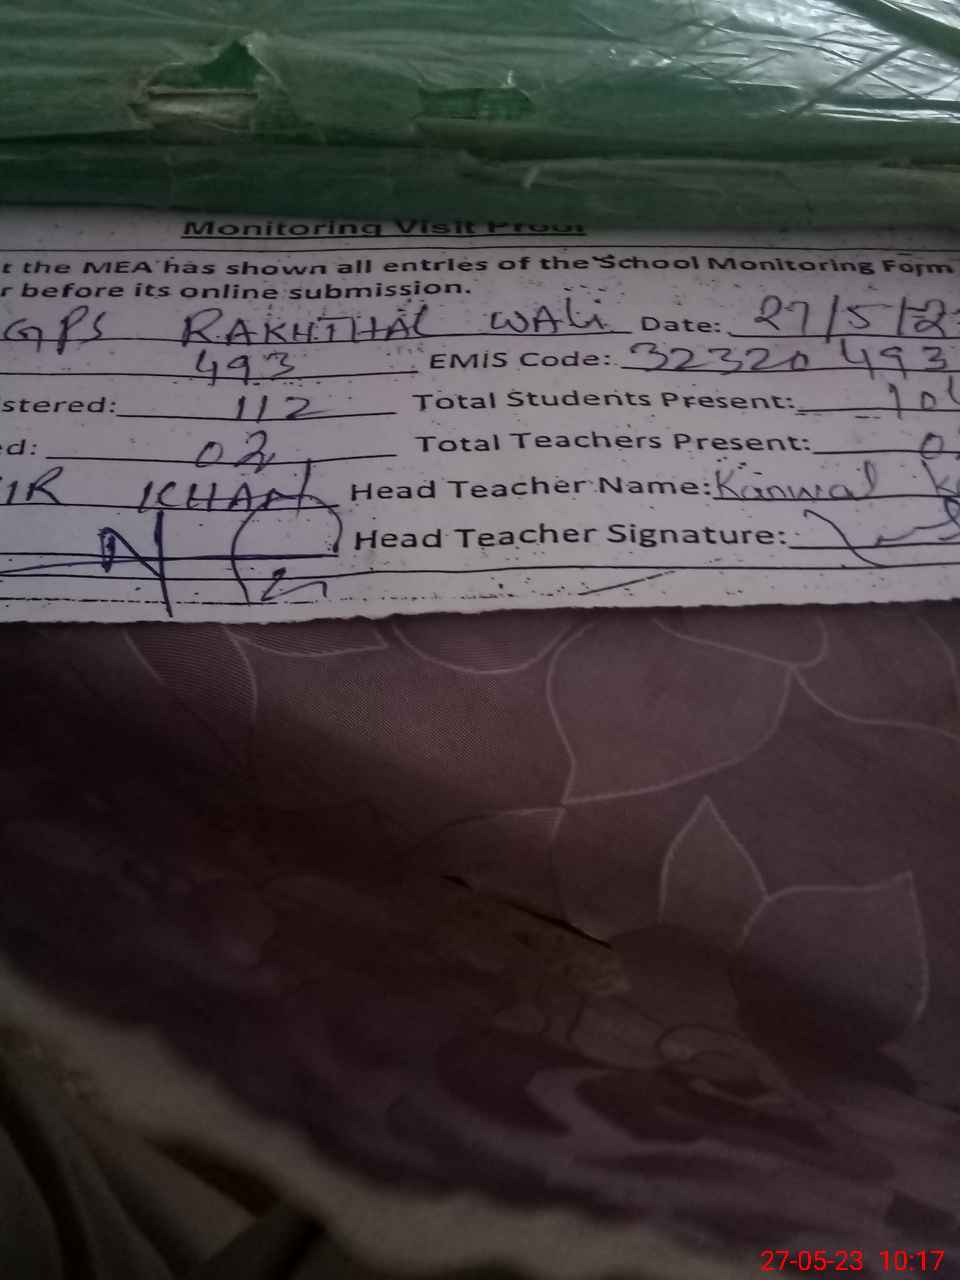 Monitoring Visit Proof
t the MEA has shown all entries of the School Monitoring Form
r before its online submission.
GPS RAKHTHAL WALI Date: 27/5/2
493 EMIS Code: 32320493
stered: 112 Total Students Present: 10
ed: 02 Total Teachers Present: 0
IR KHAN Head Teacher Name: Kanwal K
Head Teacher Signature:
27-05-23 10:17